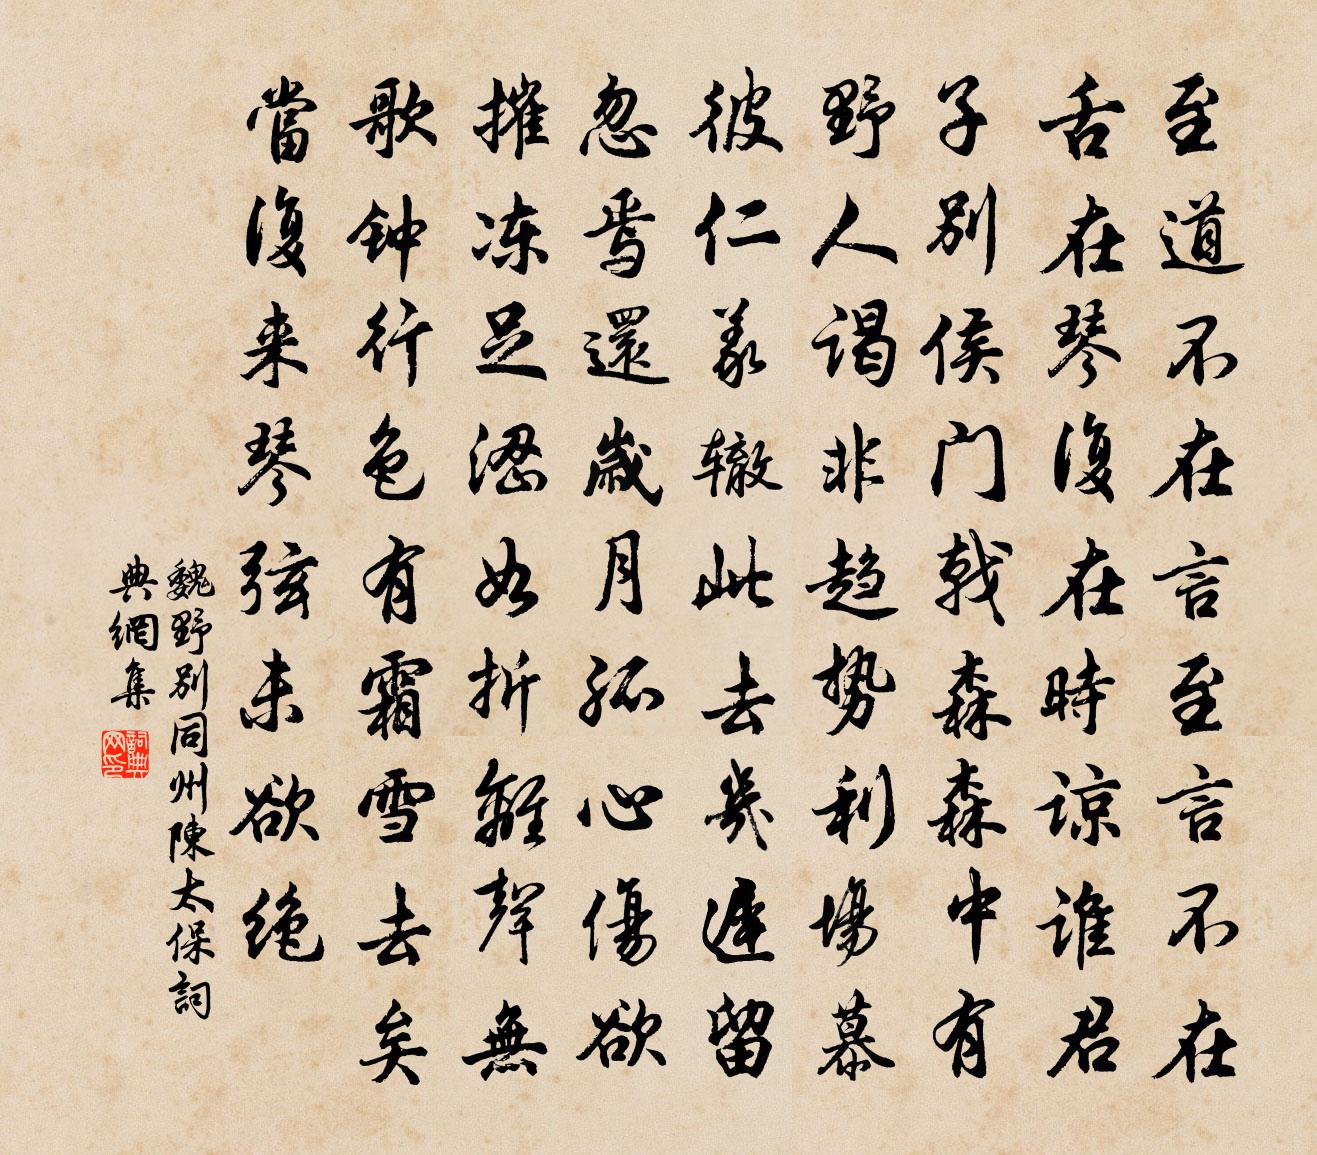 至道不在言至言不在
舌在琴復在時谅谁君
子別侯门戟森森中有
野人谒非趋势利場慕
彼仁義辙此去幾遲留
忽焉還歲月孤心傷欲
摧冻足澀如折離聲無
歌钟行色有霜雪去矣
當復来琴弦未欲绝
魏野別同州陳太保詞
典網集
詞典网印